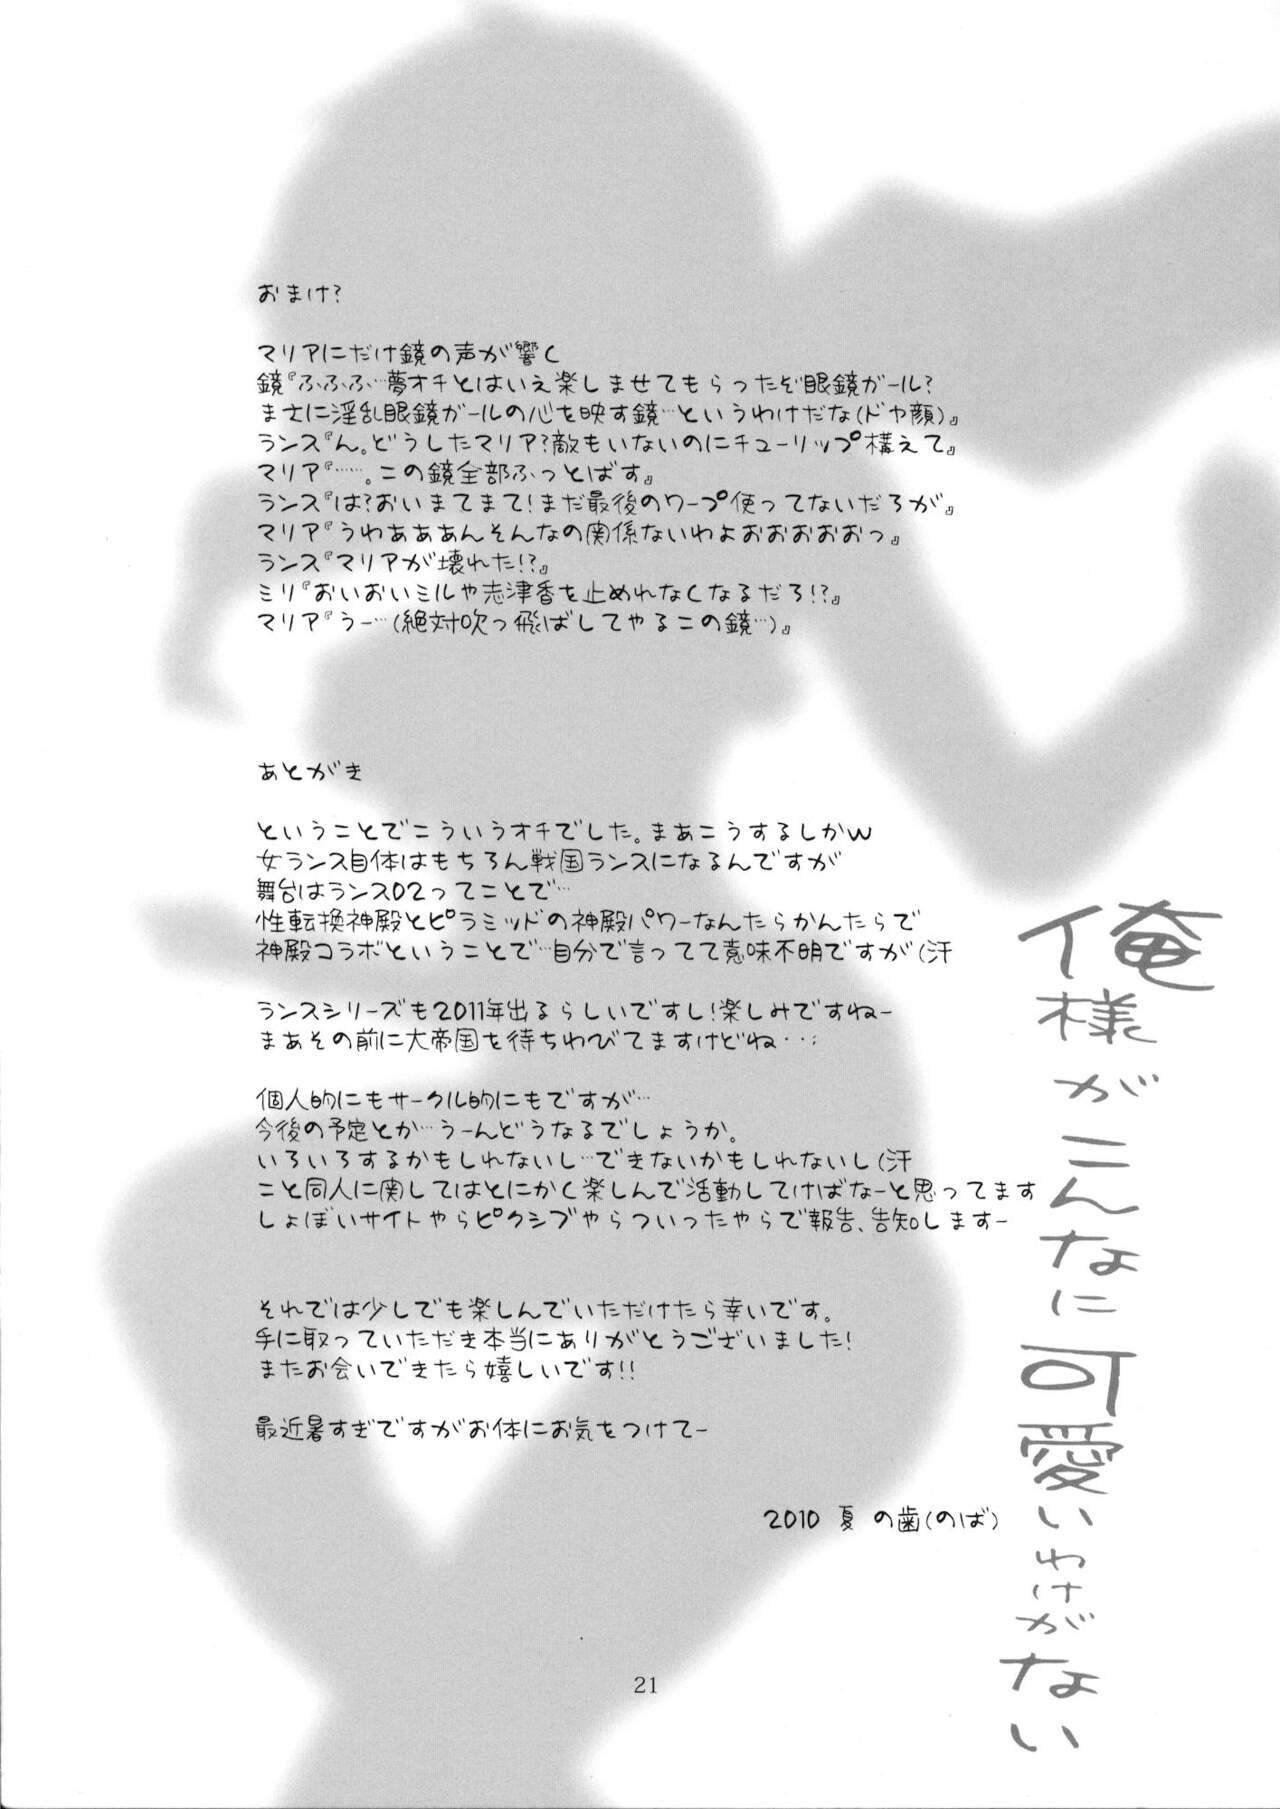 おまけ？
マリアにだけ鏡の声が響く
鏡『ふふふ…夢オチとはいえ楽しませてもらったぞ眼鏡ガール？
まさに淫乱眼鏡ガールの心を映す鏡…というわけだな(ドヤ顔)』
ランス『ん。どうしたマリア？敵もいないのにチューリップ構えて』
マリア『……。この鏡全部ふっとばす』
ランス『は？おいまてまて！まだ最後のワープ使ってないだろが』
マリア『うわあああんそんなの関係ないわよおおおおおっ』
ランス『マリアが壊れた！？』
ミリ『おいおいミルや志津香を止めれなくなるだろ！？』
マリア『うー…(絶対吹っ飛ばしてやるこの鏡…)』
あとがき
ということでこういうオチでした。まあこうするしかw
女ランス自体はもちろん戦国ランスになるんですが
舞台はランス02ってことで…
性転換神殿とピラミッドの神殿パワーなんたらかんたらで
神殿コラボということで…自分で言ってて意味不明ですが(汗
ランスシリーズも2011年出るらしいですし！楽しみですねー
まあその前に大帝国を待ちわびてますけどね・・；
個人的にもサークル的にもですが…
今後の予定とか…うーんどうなるでしょうか。
いろいろするかもしれないし…できないかもしれないし(汗
こと同人に関してはとにかく楽しんで活動してけばなーと思ってます
しょぼいサイトやらピクシブやらついったやらで報告、告知しますー
それでは少しでも楽しんでいただけたら幸いです。
手に取っていただき本当にありがとうございました！
またお会いできたら嬉しいです！！
最近暑すぎですがお体にお気をつけてー
2010 夏 の歯(のば)
俺様がこんなに可愛いわけがない
21